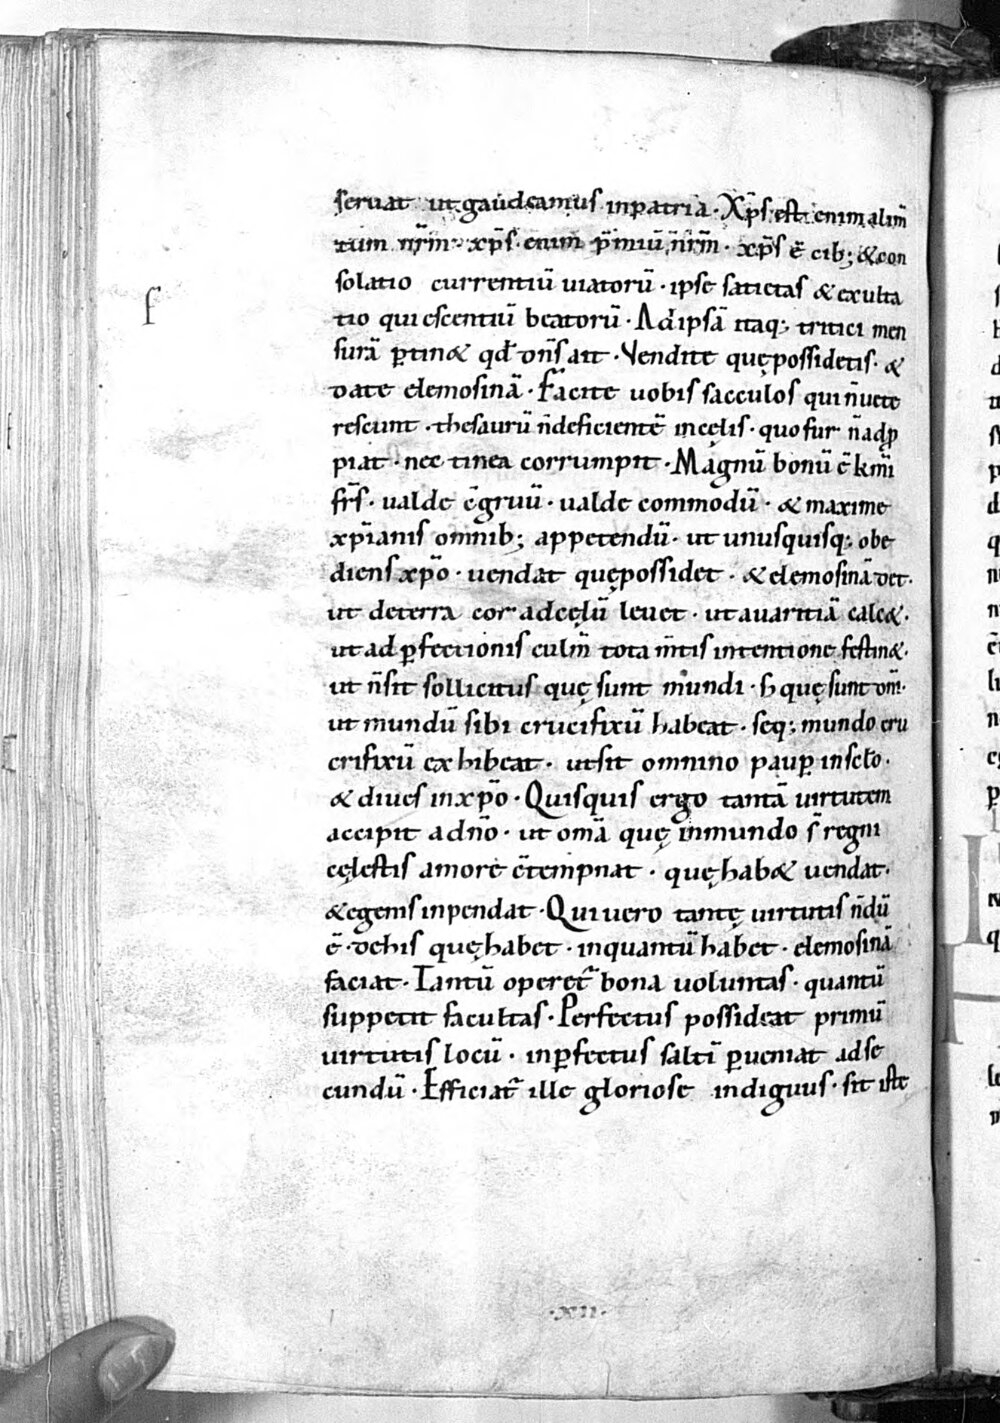 seruat ut gaudeamus inpatria · Xp̄s est enim alim̄
tum nr̄m · xp̄s enim p̄miū nr̄m · xp̄s ē cib; & con
solatio currentiū uiatorū · ipse satietas & exulta
tio quiescentiū beatorū · Ad ipsā itaq; tritici men
surā ꝑtin& qd̄ dn̄s ait · Vendite quę possidetis · &
date elemosinā · Facite uobis sacculos qui n̄ uete
rescunt · thesaurū n̄ deficientē in cęlis · quo fur n̄ adꝓ
f
piat · nec tinea corrumpit · Magnū bonū ē kmī
fr̄s · ualde c̄gruū · ualde commodū · & maxime
xp̄ianis omnib; appetendū · ut unusquisq; obe
diens xp̄o · uendat quę possidet · & elemosinā det ·
ut de terra cor ad cęlū leuet · ut auaritiā calc& ·
ut ad ꝑfectionis culm̄ tota m̄tis intentione festin& ·
ut n̄ sit sollicitus quę sunt mundi · ħ quę sunt dn̄i ·
ut mundū sibi crucifixū habeat · seq; mundo cru
crifixū exhibeat · ut sit omnino pauꝑ in sclo ·
& diues in xp̄o · Quisquis ergo tantā uirtutem
accipit a dn̄o · ut om̄a quę in mundo s̄ regni
cęlestis amore c̄tempnat · quę hab& uendat ·
& egenis inpendat · Qui uero tantę uirtutis n̄dū
ē · de his quę habet · inquantū habet · elemosinā
faciat · Tantū operet᷑ bona uoluntas · quantū
suppetit facultas · Perfectus possideat primū
uirtutis locū · inꝑfectus saltī ꝑueniat ad se
cundū · Efficiat᷑ ille gloriose indiguus · sit iste
· XII ·